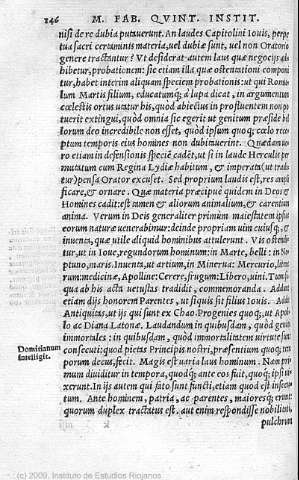 146 M. FAB. QVINT. INSTIT.
nisi de re dubia putauerunt. An laudes Capitolini Iouis, perpe
tua sacri certaminis materia, uel dubiæ sunt, uel non Oratorio
genere tractantur? Vt desiderat autem laus quæ negocijs ad
hibetur, probationem: sic etiam illa quæ ostentationi componi
tur, habet interim aliquam speciem probationis: ut qui Romu
lum Martis filium, educatumq; à lupa dicat, in argumentum
cœlestis ortus utatur his, quod abiectus in profluentem non po
tuerit extingui, quòd omnia sic egerit ut genitum præside bel
lorum deo incredibile non esset, quòd ipsum quoq; cœlo rece
ptum temporis eius homines non dubitauerint. Quædam ue
ro etiam in defensionis speciē cadēt, ut si in laude Herculis per
mutatum cum Regina Lydiæ habitum, & imperata (ut tradi
tur) pensa Orator excuset. Sed proprium laudis est, res ampli
ficare, & ornare. Quæ materia præcipue quidem in Deos &
Homines cadit: est tamen & aliorum animalium, & carentium
anima. Verum in Deis generaliter primùm maiestatem ipsius
eorum naturæ uenerabimur: deinde propriam uim cuiusq; &
inuenta, quæ utile aliquid hominibus attulerint. Vis osten
tur, ut in Ioue, regundorum hominum: in Marte, belli: in Ne
ptuno, maris. Inuenta, ut artium, in Minerua: Mercurio, litera
rum: medicinæ, Apolline: Cerere, frugum: Libero, uini. Tum si
qua ab his acta uetustas tradidit, commemoranda. Addunt
etiam dijs honorem Parentes, ut siquis sit filius Iouis. Addit
Antiquitas, ut ijs qui sunt ex Chao. Progenies quoq;, ut Apol
lo ac Diana Latonæ. Laudandum in quibusdam, quòd geniti
immortales: in quibusdam, quòd immortalitatem uirtute sint
Domitianum
intelligit.
consecuti: quod pietas Principis nostri, præsentium quoq; tem
porum decus, fecit. Magis est uaria laus hominum. Nam pri
mum diuiditur in tempora, quodq; ante eos fuit, quoq; ipsi ui
xerunt. In ijs autem qui fato sunt functi, etiam quod est insecu
tum. Ante hominem, patria, ac parentes, maioresq; erunt:
quorum duplex tractatus est. aut enim respondisse nobilitati,
pulchrum
(c) 2009. Instituto de Estudios Riojanos